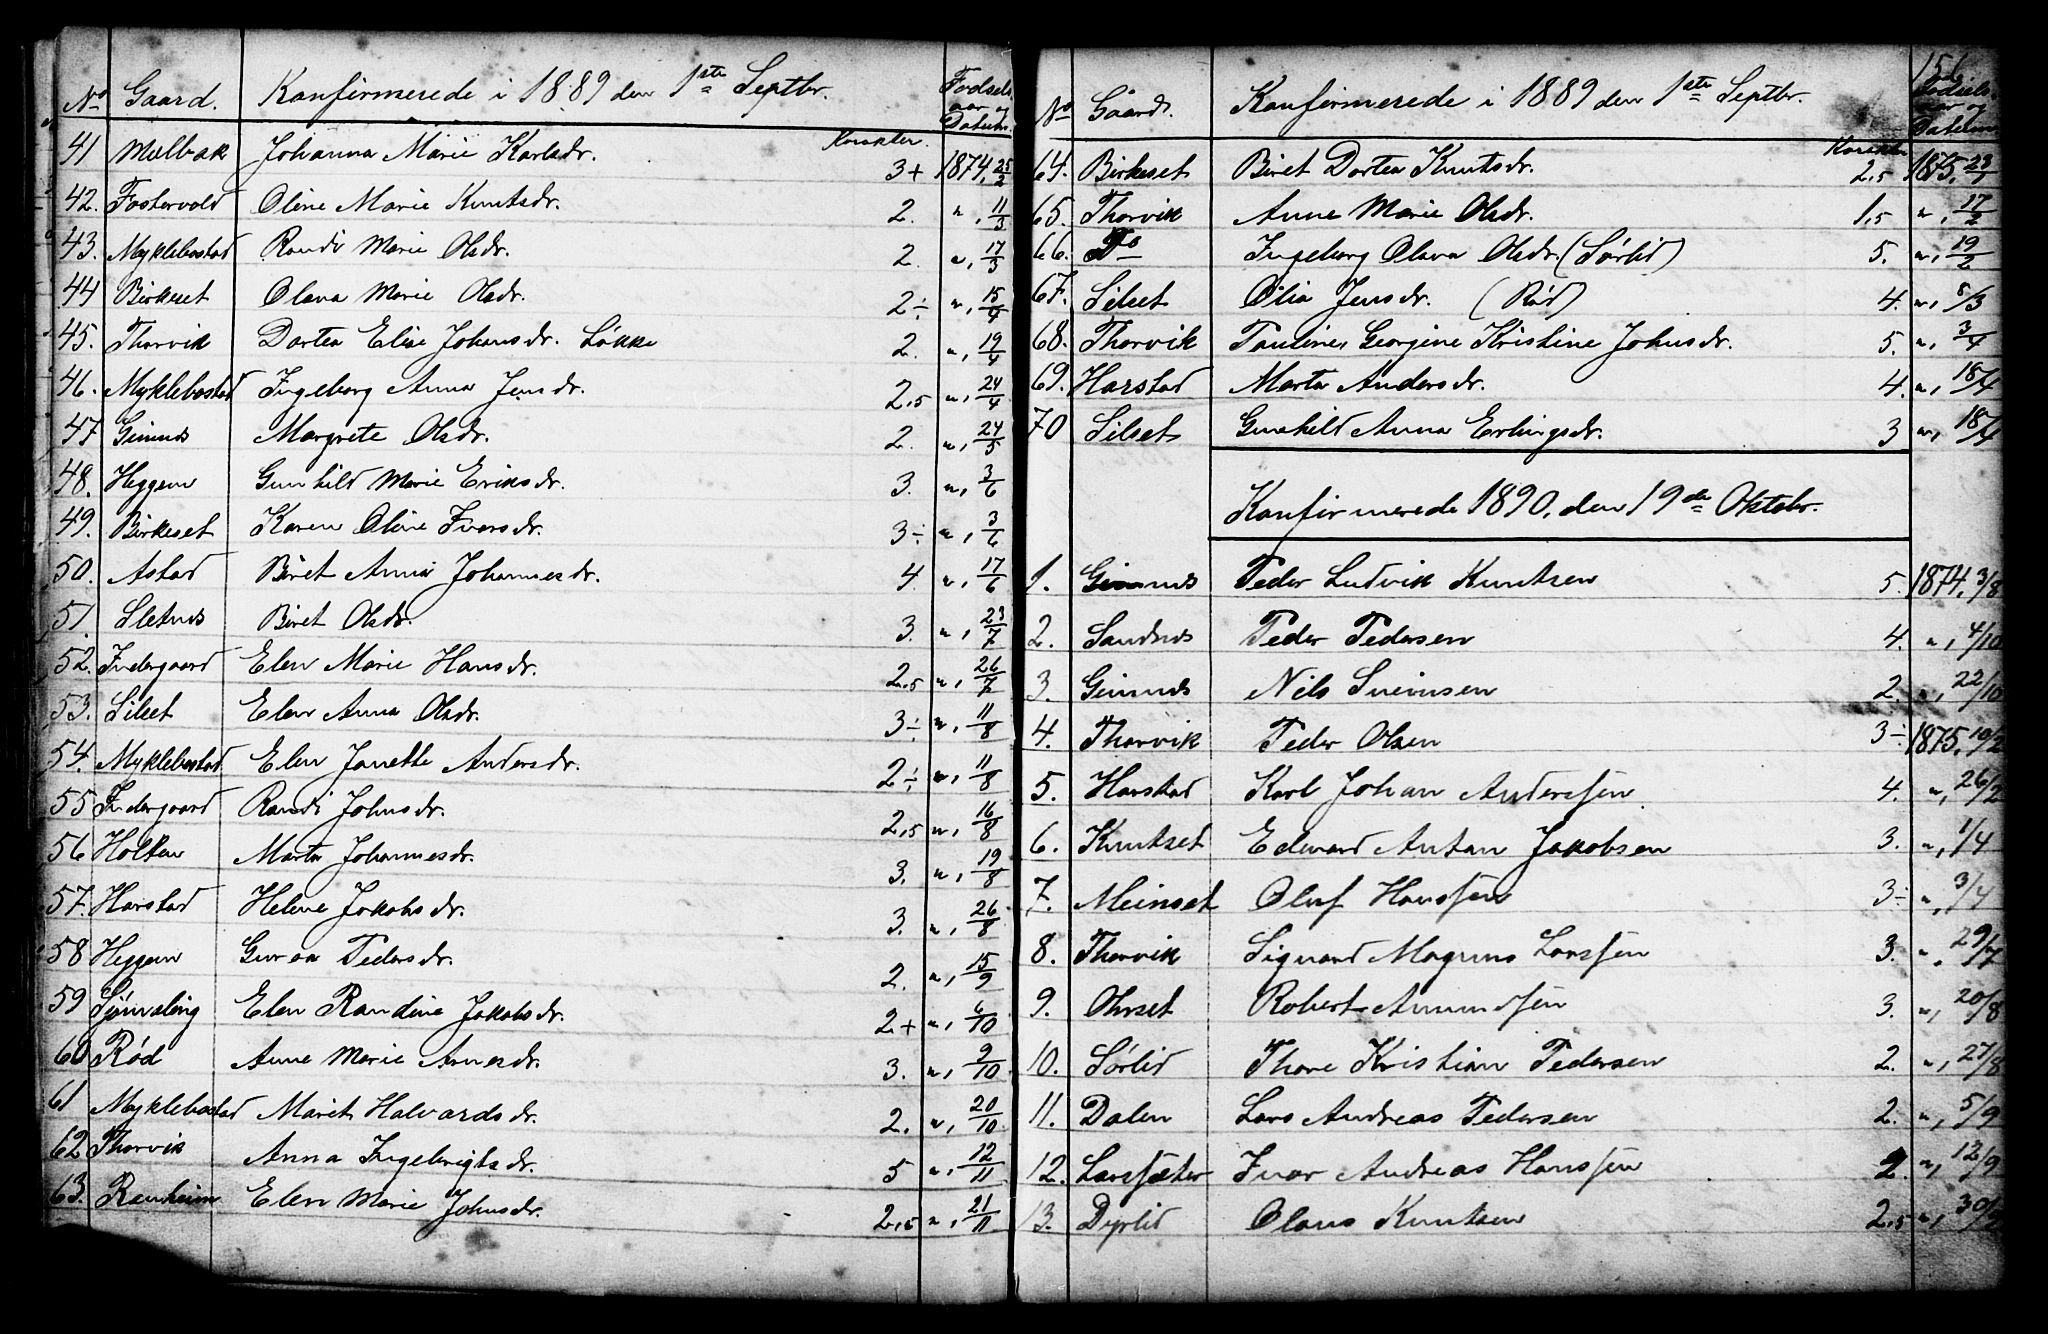 No Gaard. Konfirmerede i 1889 den 1ste Septbr. Fødsels aar og Datum.
Karakter.
41 Melbak Johanna Marie Karlsdr. 3+ 1874, 25/2
42. Fostervold Oline Marie Knutsdr. 2. ", 11/3
43. Myklebostad Randi Marie Olsdr. 2. ", 17/3
44 Birkeset Olava Marie Olsdr. 2÷ ", 15/4
45. Thorvik Dortea Elise Johansdr. Løkke 2. ", 19/4
46. Myklebostad Ingeborg Anna Jensdr. 2,5 ", 24/4
47 Gimnes Margrete Olsdr. 2. ", 24/5
48. Heggem Gunhild Marie Eriksdr. 3. ", 3/6
49. Birkeset Karen Oline Ivarsdr. 3÷ ", 3/6
50. Astad Beret Anna Johannesdr. 4. ", 17/6
51. Sletnes Beret Olsdr. 3. ", 23/7
52. Indergaard Elen Marie Hansdr. 2,5 ", 26/7
53. Silset Elen Anna Olsdr. 3÷ ", 11/8
54. Myklebostad Elen Janette Andersdr. 2÷ ", 11/8
55 Indergaard Randi Johnsdr. 2,5 ", 16/8
56 Holten Marta Johannesdr. 3. ", 19/8
57. Harstad Helene Jakobsdr. 3. ", 26/8
58 Heggem Guroa Pedersdr. 2. ", 15/9
59 Elen Randine Jakobsdr. 2+ ", 6/10
60 Rød Anne Marie Arnesdr. 3. ", 9/10
61 Myklebostad Maret Halvardsdr. 2. ", 20/10
62 Thorvik Anna Ingebrigtsdr. 5 ", 12/11
63. Renheim Elen Marie Johnsdr. 2,5 ", 21/11
151
No Gaard. Konfirmerede i 1889 den 1ste Septbr. Fødsels aar og Datum
Karakter
64. Birkeset Beret Dortea Knutsdr. 2,5 1875, 23/1
65. Thorvik Anne Marie Olsdr. 1,5 ", 17/2
66. Do Ingeborg Olava Olsdr. (Sørlid) 5. ", 19/2
67. Silset Olia Jensdr. (Rød) 4. ", 8/3
68. Thorvik Pauline Georgine Kristine Johnsdr. 5. ", 3/4
69. Harstad Marta Andersdr. 4. ", 18/4
70 Silset Gunhild Anna Erlingsdr. 3 ", 18/4
Konfirmerede 1890, den 19de Oktobr.
1. Gimnes Peder Ludvik Knutsen 5. 1874, 3/8
2. Sandnes Peder Pedersen 4. ", 4/10
3. Gimnes Nils Sveinsen 2. ", 22/10
4. Thorvik Peder Olsen 3÷ 1875, 10/2
5. Harstad Karl Johan Anderssen 4. ", 26/2
6. Knutset Edvard Antan Jakobsen 3. ", 1/4
7. Meinset Oluf Hanssen 3÷ ", 3/4
8. Thorvik Sigvard Magnus Larssen 3. ", 29/7
9. Ohrset Robert Amundsen 3. ", 20/8
10. Sørlid Thore Kristian Pedersen 2. ", 27/8
11. Dalen Lars Andreas Pedersen 2. ", 5/9
12. Larssæter Ivar Andreas Hanssen 2. ", 12/9
13. Dyrlid Olaus Knutsen 2,5 ",